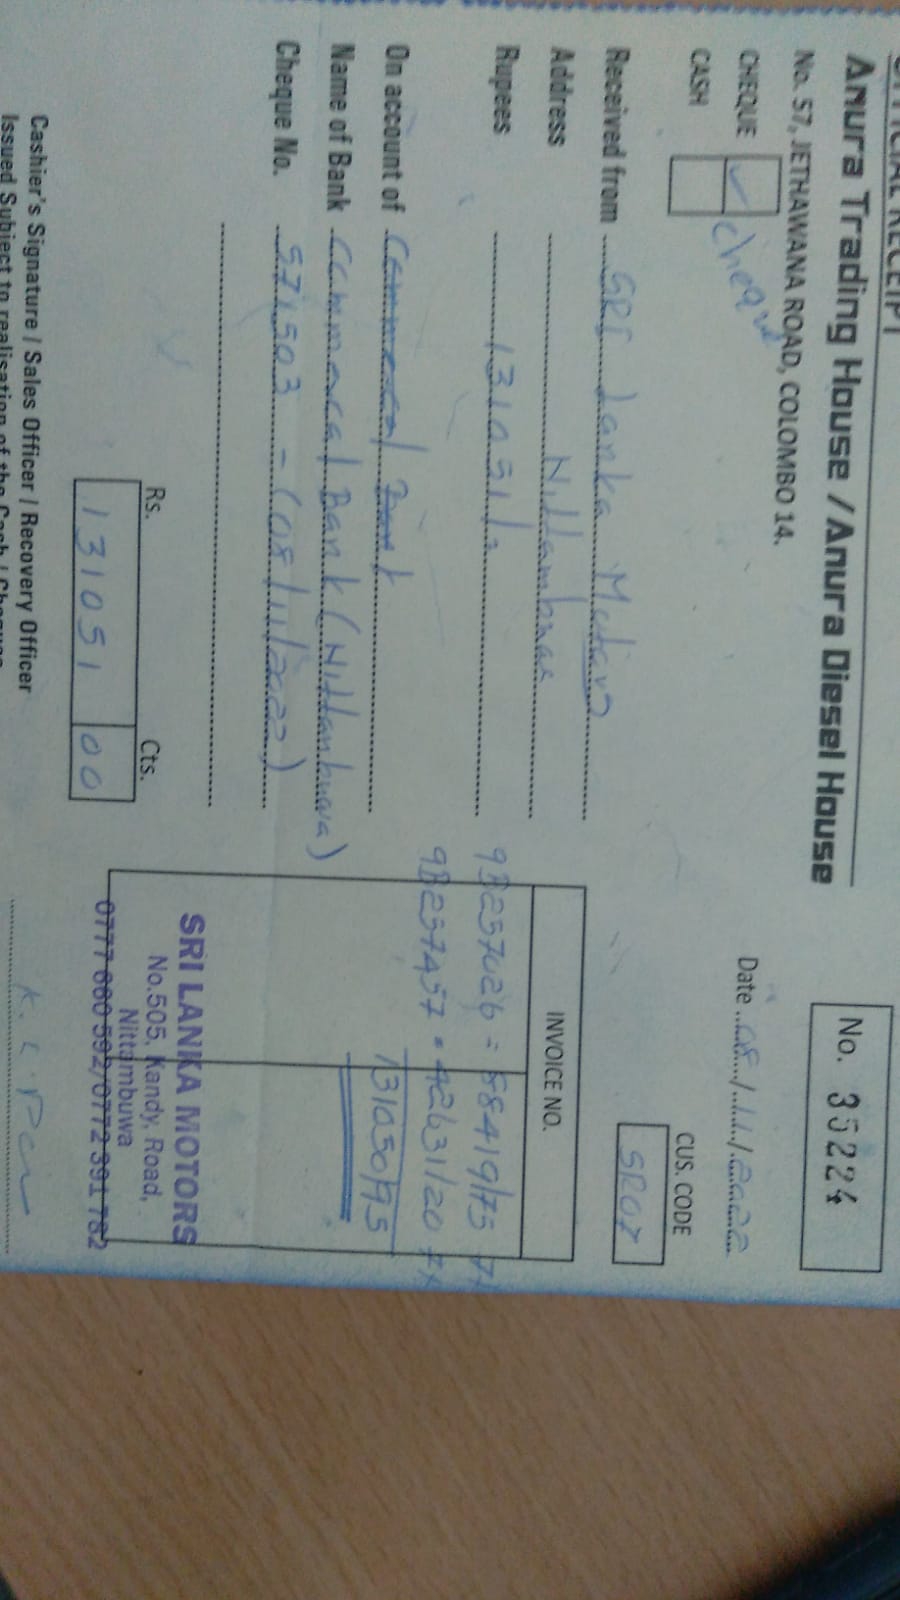 OFFICIAL RECEIPT
Anura Trading House / Anura Diesel House
No. 57, JETHAWANA ROAD, COLOMBO 14.
No. 35224
CHEQUE ✓ cheque
CASH
Date 08/11/2022
CUS. CODE
SR07
Received from SRI Lanka Motors
Address Nittambuwa
Rupees 131051/=
On account of Commercial Bank
Name of Bank Commercal Bank (Nittambuwa)
Cheque No. 571503 - (08/11/2022)
INVOICE NO.
9B257026 = 88419/75
9B257457 = 42631/20
131050/95
Rs. Cts.
131051 00
SRI LANKA MOTORS
No.505, Kandy Road,
Nittambuwa
0777 660 592/0772 391 782
Cashier's Signature / Sales Officer / Recovery Officer
Issued Subject to realisation of the Cash / Cheque